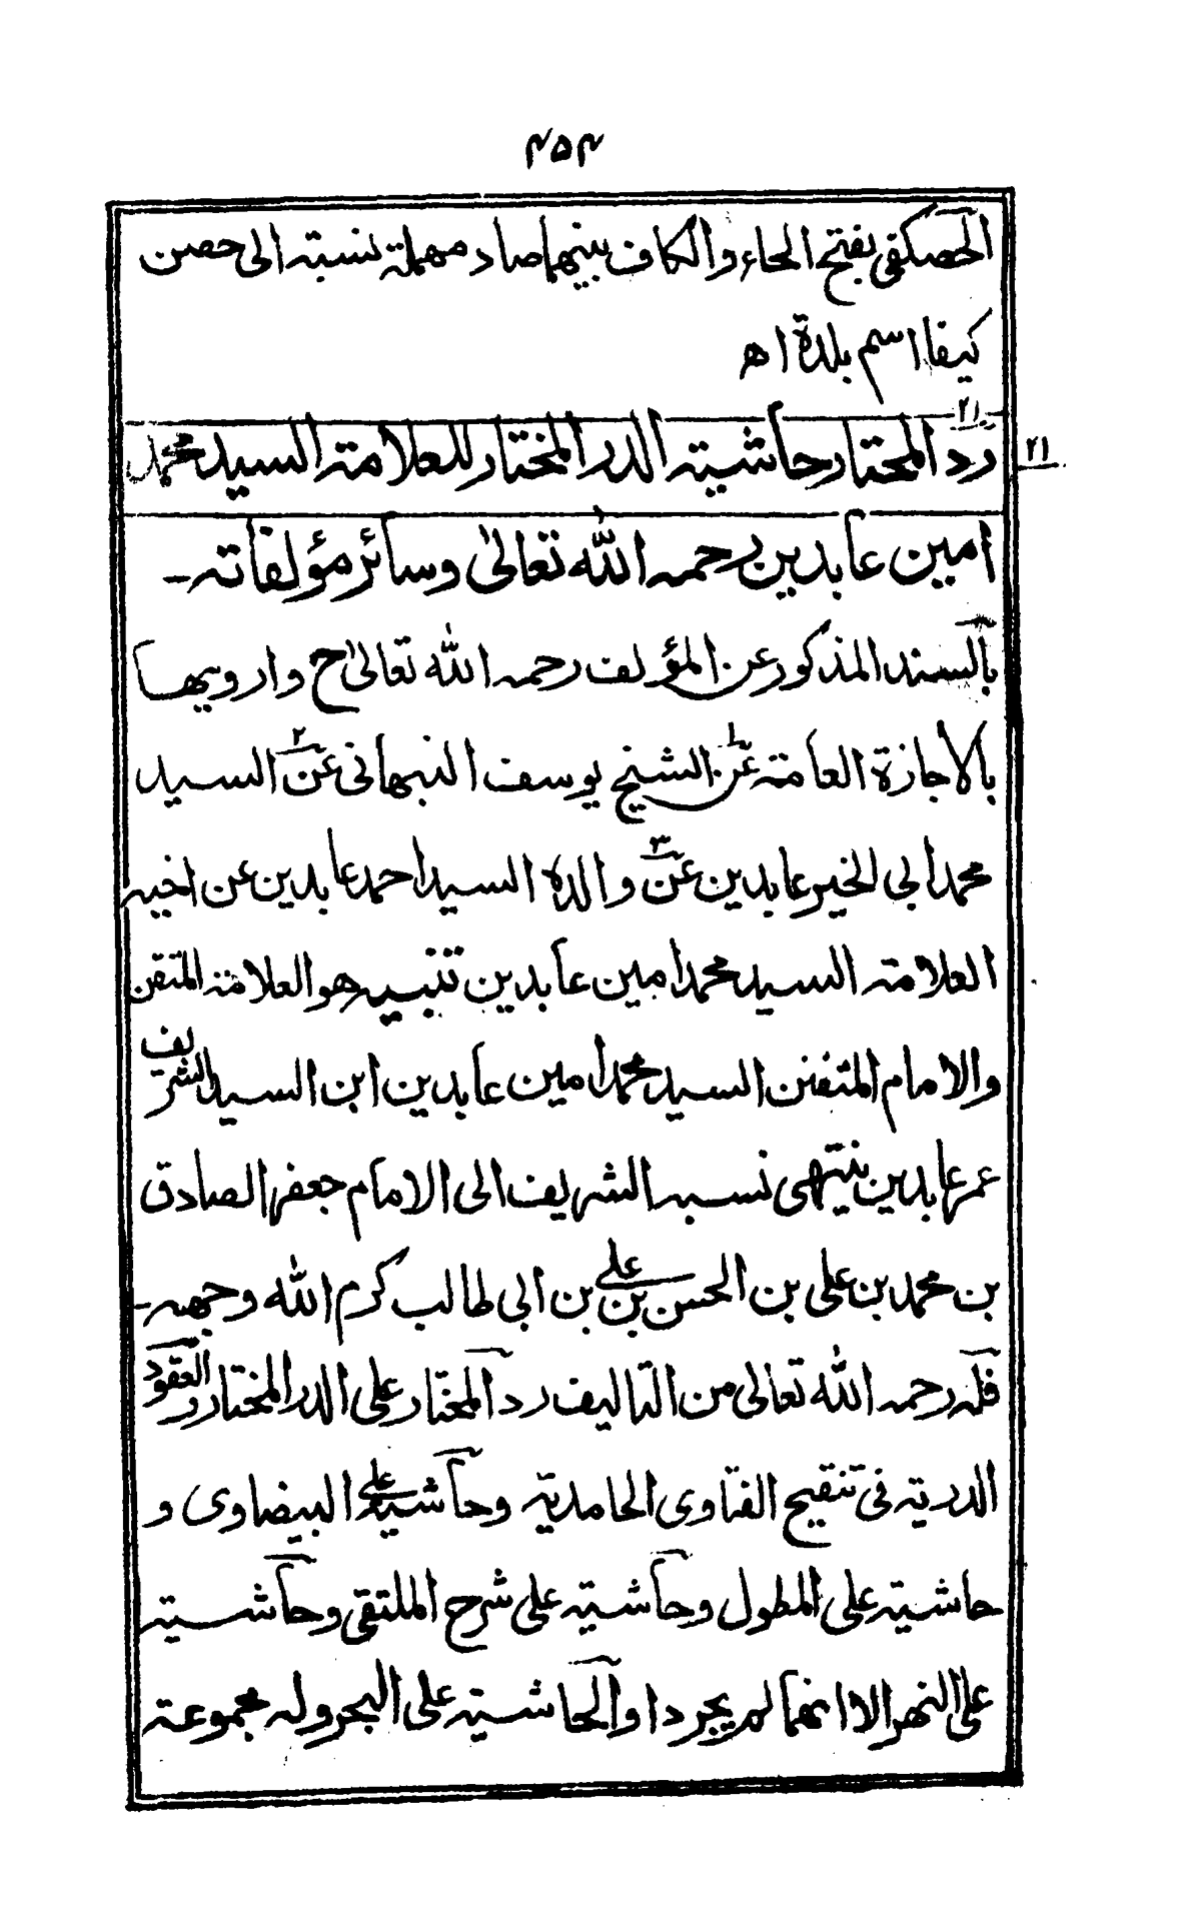 ۴۵۴
الحصكفى بفتح الحاء والكاف بينهما صاد مهملة نسبته الى حصن
كيفا اسم بلدة اھ
۲۱
رد المحتار حاشيته الدر المختار للعلامته السيد محمد
۲۱
امين عابدين رحمه الله تعالىٰ وسائر مؤلفاته ـ
بالسند المذكور عن المؤلف رحمه الله تعالىٰ ح وارويها
بالاجازة العامته عن۱ الشيخ يوسف النبهانى عن۲ السيد
محمد ابى الخير عابدين عن۳ والده السيد احمد عابدين عن اخيه
العلامته السيد محمد امين عابدين تنبيه هو العلامته المتقن
والامام المتفنن السيد محمد امين عابدين ابن السيد الشريف
عمر عابدين ينتهى نسبه الشريف الى الامام جعفر الصادق
بن محمد بن على بن الحسن بن على بن ابى طالب كرم الله وجهه ـ
فله رحمه الله تعالىٰ من التاليف رد المحتار على الدر المختار و العقود
الدريته فى تنقيح الفتاوى الحامديته وحاشيته على البيضاوى و
حاشيته على المطول وحاشيته على شرح الملتقى وحاشيته
على النهر الا انهما لم يجردا والحاشيته على البحر وله مجموعته